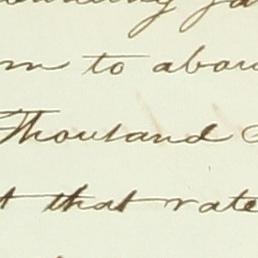 to abou
Thousand
t that rate